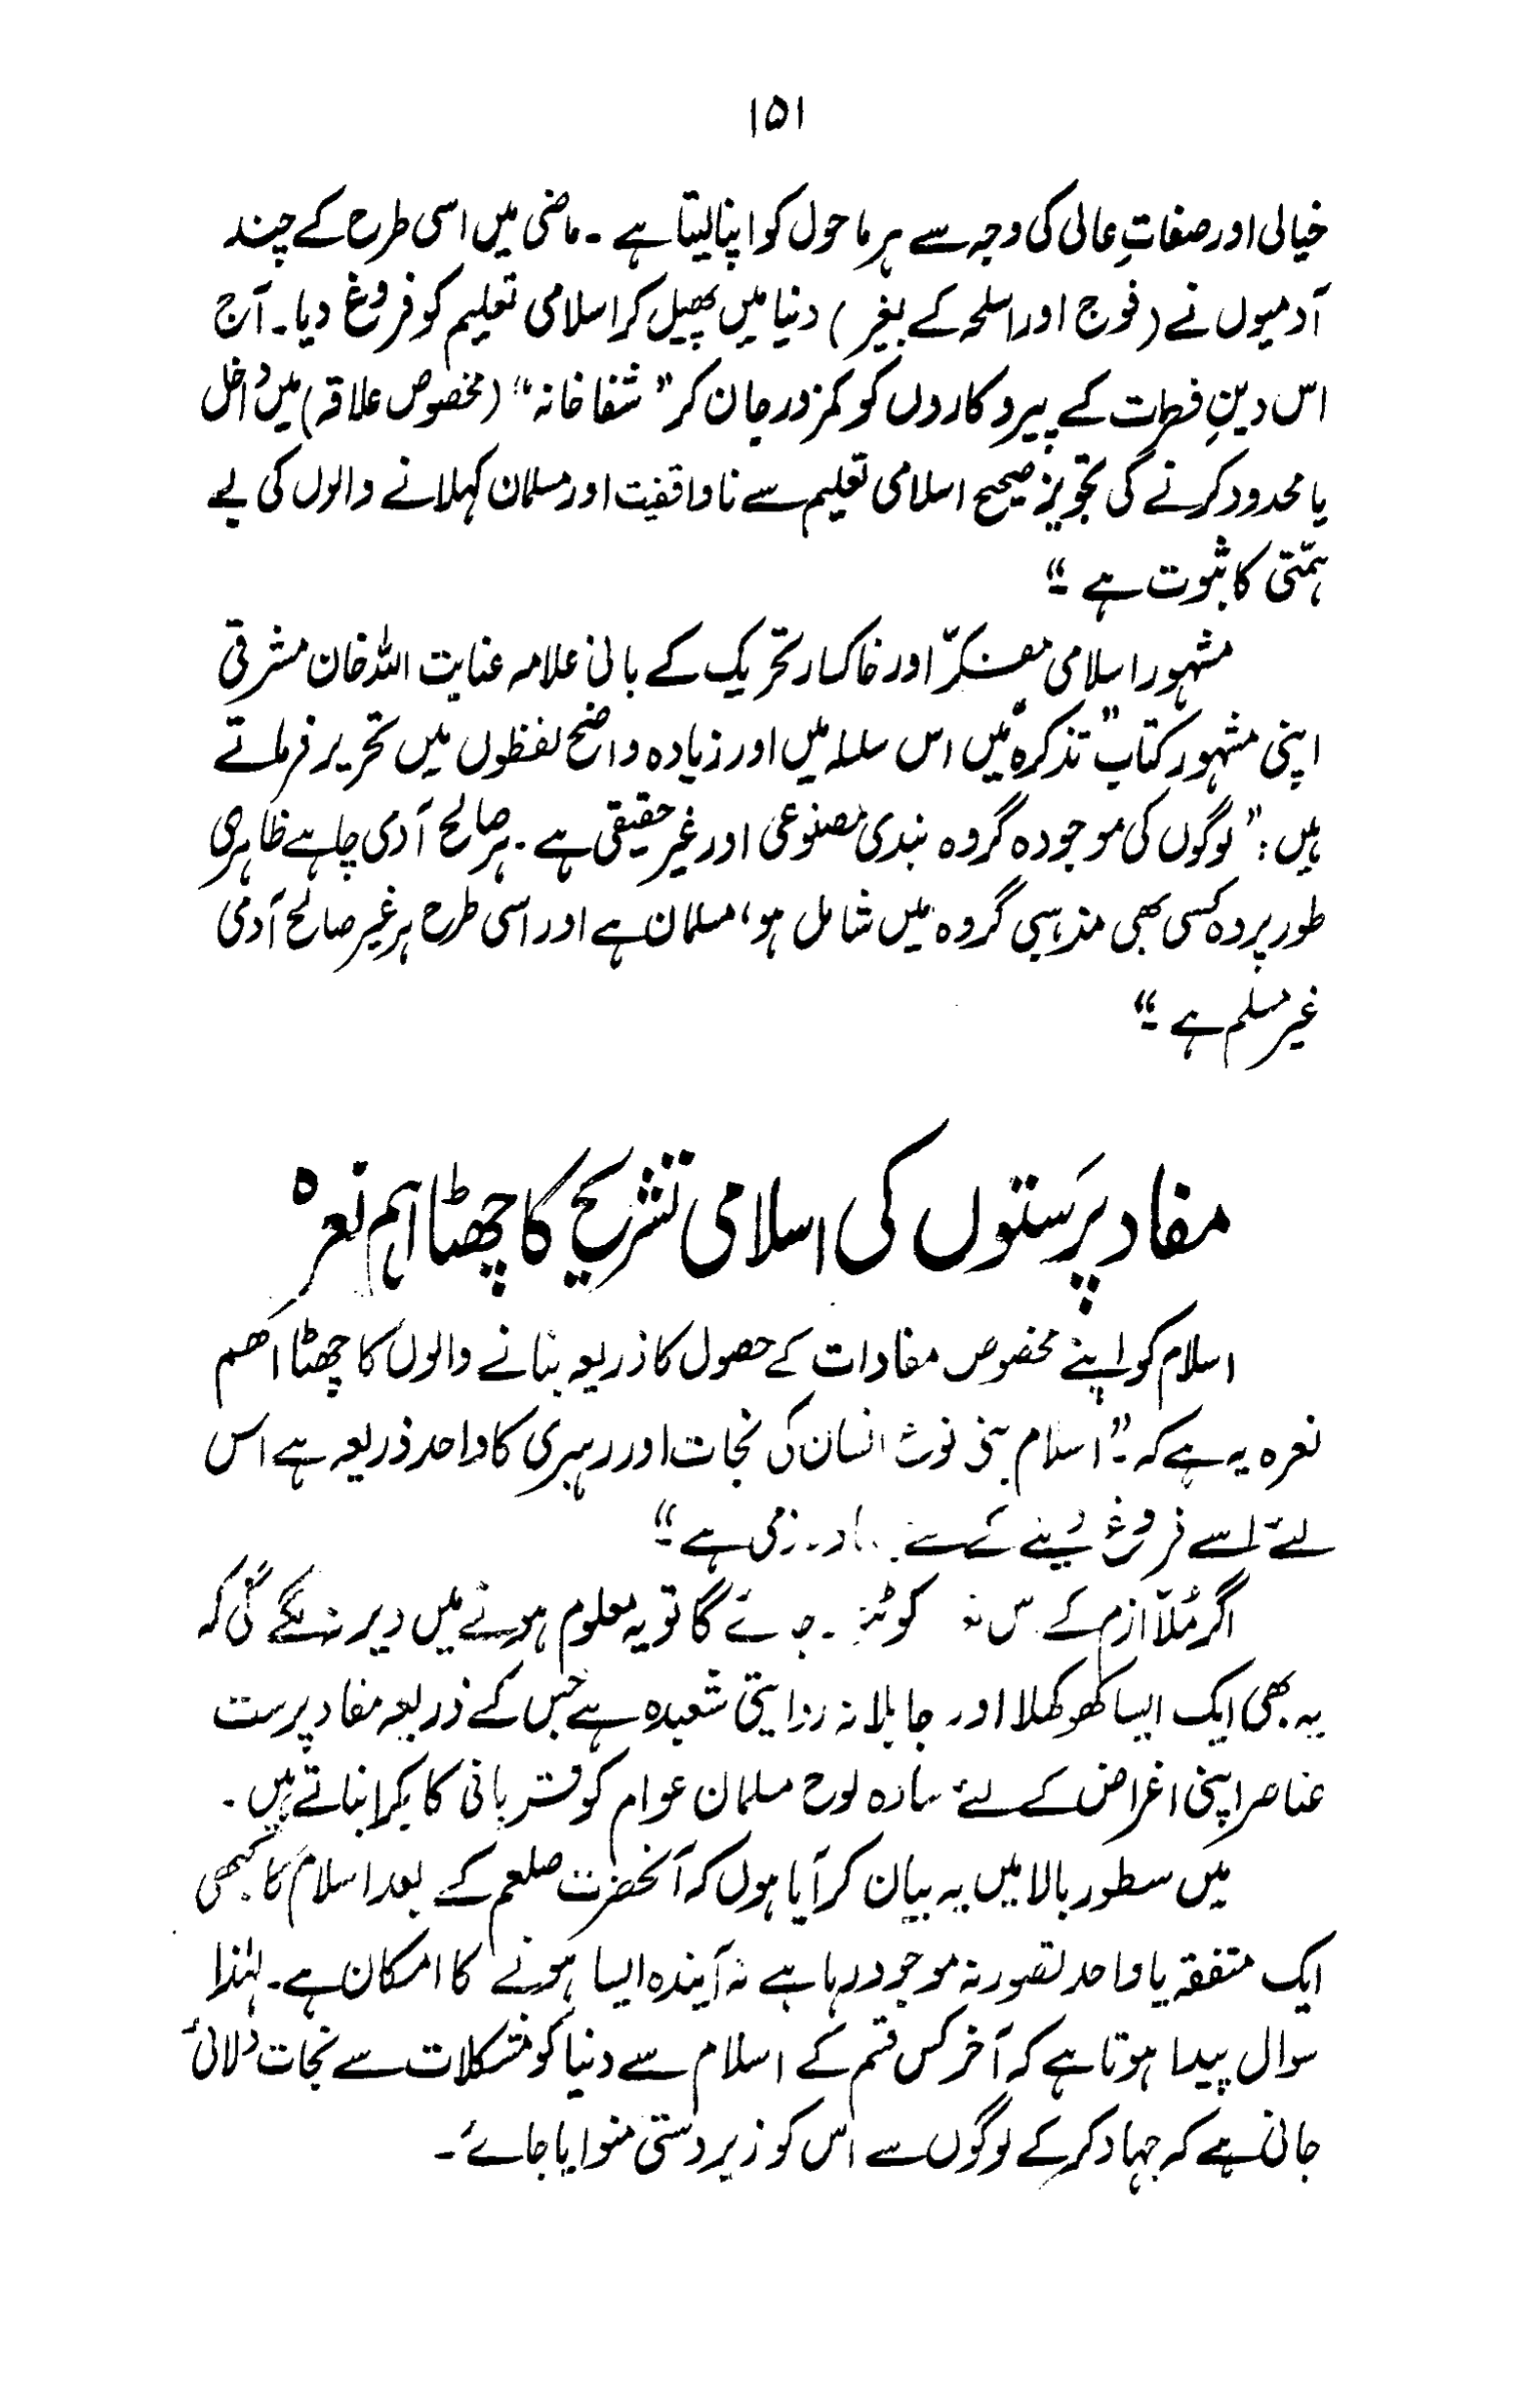 ۱۵۱
خیالی اور صفاتِ عالی کی وجہ سے ہر ماحول کو اپنا لیتا ہے ۔ ماضی میں اسی طرح کے چند
آدمیوں نے (فوج اور اسلحہ کے بغیر) دنیا میں پھیل کر اسلامی تعلیم کو فروغ دیا۔ آج
اس دینِ فطرت کے پیروکاروں کو کمزور جان کر ”شفا خانہ“ (مخصوص علاقہ) میں داخل
یا محدود کرنے کی تجویز صحیح اسلامی تعلیم سے ناواقفیت اور مسلمان کہلانے والوں کی بے
ہمّتی کا ثبوت ہے ۔“
مشہور اسلامی مفکّر اور خاکسار تحریک کے بانی علامہ عنایت اللہ خان مشرقی
اپنی مشہور کتاب ”تذکرہ“ میں اس سلسلہ میں اور زیادہ واضح لفظوں میں تحریر فرماتے
ہیں : ”لوگوں کی موجودہ گروہ بندی مصنوعی اور غیر حقیقی ہے ۔ ہر صالح آدمی چاہے ظاہری
طور پر وہ کسی بھی مذہبی گروہ میں شامل ہو، مسلمان ہے اور اسی طرح ہر غیر صالح آدمی
غیر مسلم ہے ۔“
مفاد پرَستوں کی اسلامی تشریح کا چھٹا اہم نعرہ
اسلام کو اپنے مخصوص مفادات کے حصول کا ذریعہ بنانے والوں کا چھٹا اھم
نعرہ یہ ہے کہ ۔”اسلام بنی نوع انسان کی نجات اور رہبری کا واحد ذریعہ ہے اس
لئے اسے فروغ دینے کے ہے ۔“
اگر مُلّا ازم کے گا تو یہ معلوم ہونے میں دیر نہ لگے گی کہ
یہ بھی ایک ایسا کھوکھلا اور جاہلانہ روایتی شعبدہ ہے جس کے ذریعہ مفاد پرست
عناصر اپنی اغراض کے لئے سادہ لوح مسلمان عوام کو قربانی کا بکرا بناتے ہیں ۔
میں سطور بالا میں یہ بیان کر آیا ہوں کہ آنحضرت صلعم کے بعد اسلام کا کبھی
ایک متفقہ یا واحد تصور نہ موجود رہا ہے نہ آیندہ ایسا ہونے کا امکان ہے۔ لہٰذا
سوال پیدا ہوتا ہے کہ آخر کس قسم کے اسلام سے دنیا کو مشکلات سے نجات دلائی
جانی ہے کہ جہاد کر کے لوگوں سے اس کو زبردستی منوایا جائے ۔